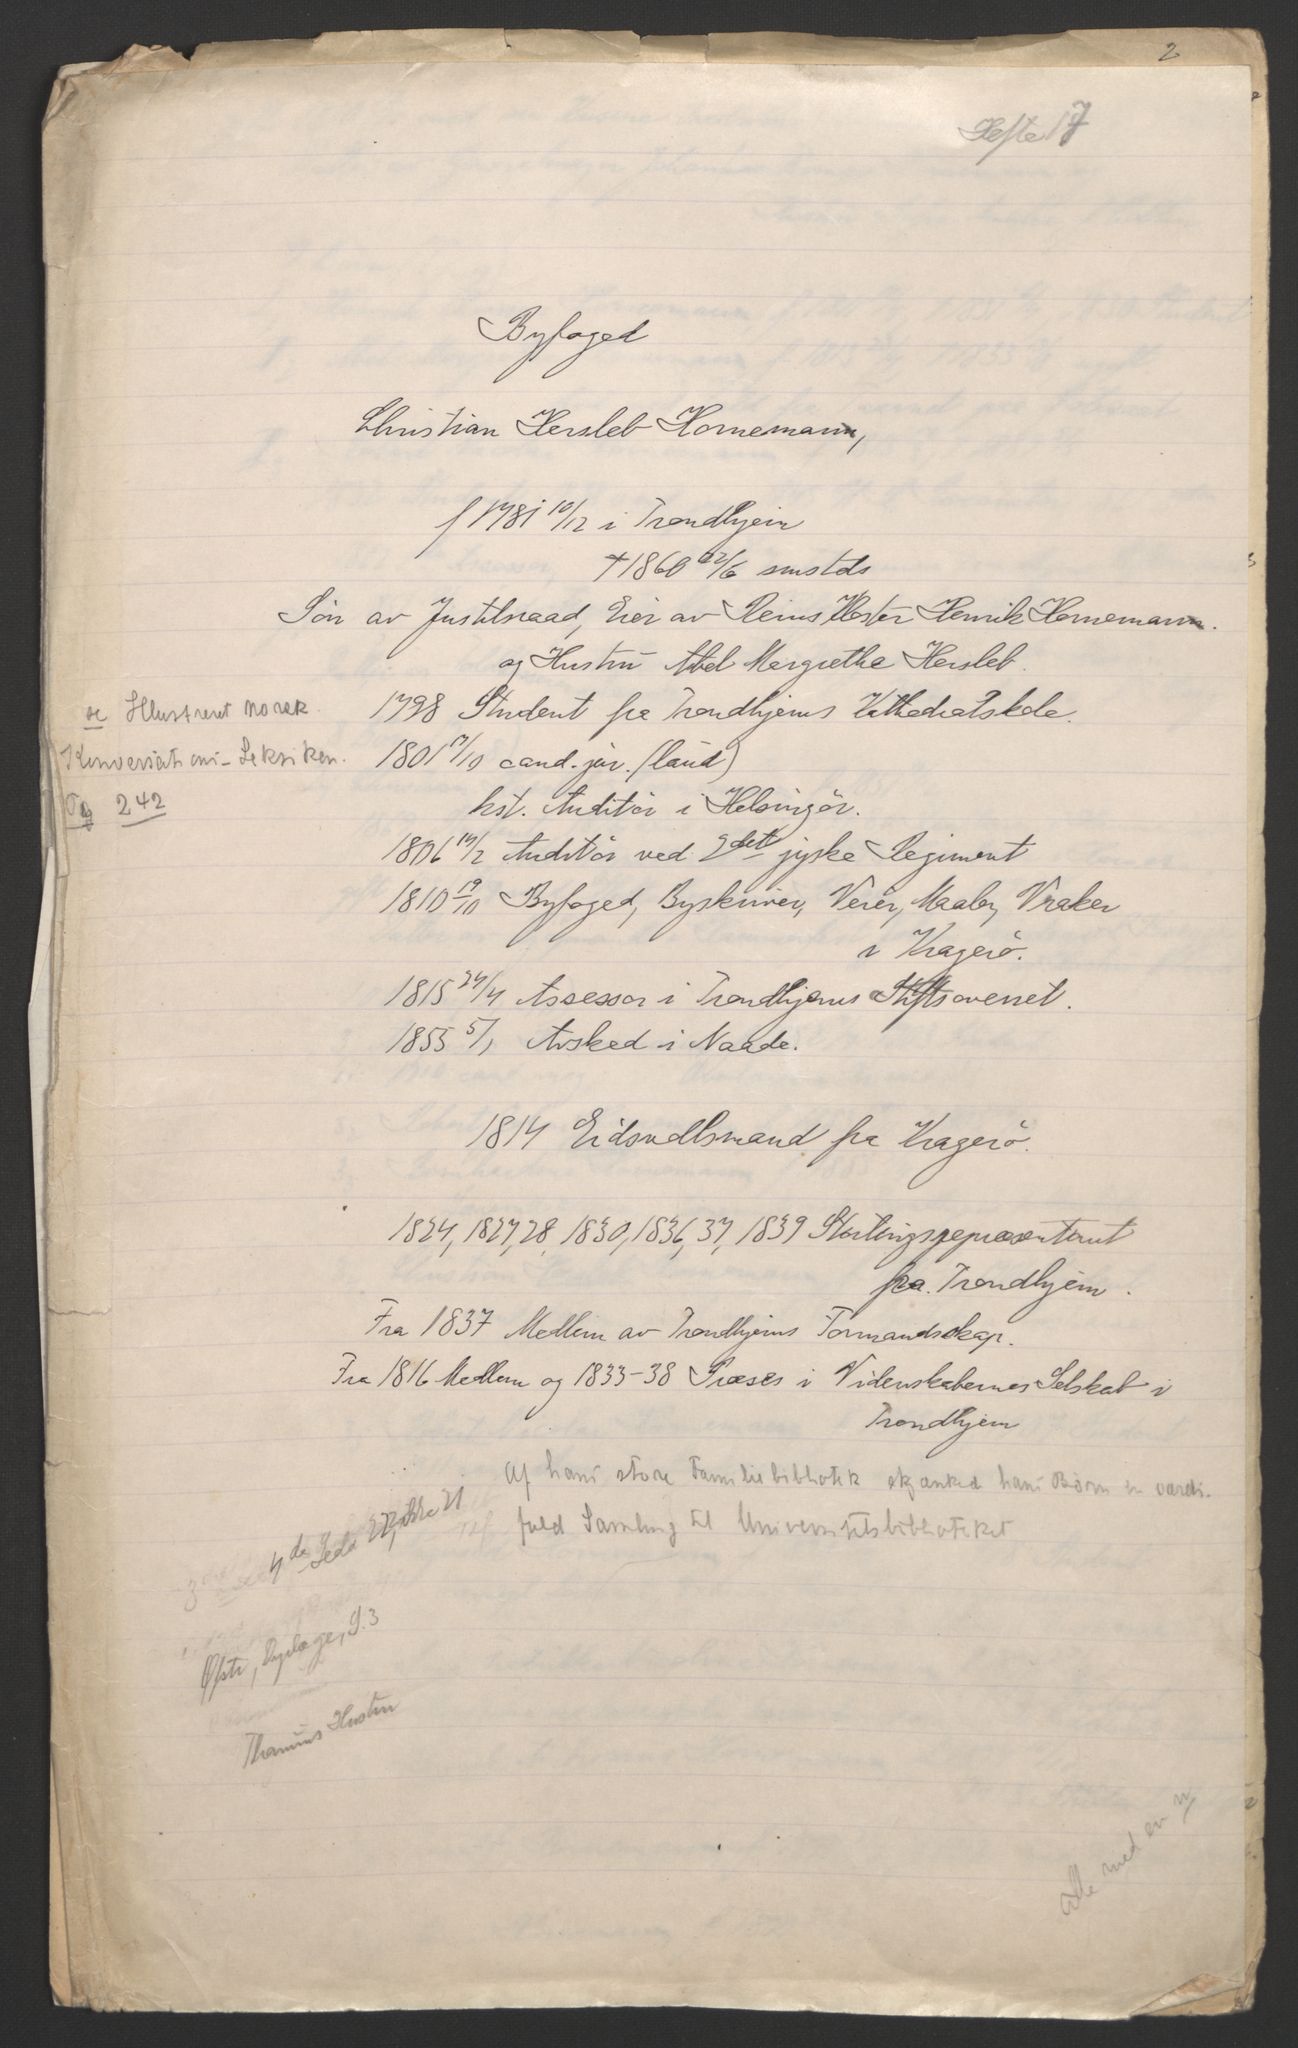 2
Hefte 17
Byfoged
Christian Hersleb Hornemann,
f 1781 10/12 i Trondhjem
† 1860 22/6 smstds
Sön av Justitsraad, Eier av Reins Kloster Henrik Hornemann.
og Hustru Abel Margrethe Hersleb.
se Illustreret norsk
Konversations-Leksikon.
Pg 242
1798 Student fra Trondhjems Kathedralskole.
1801 /10 cand. jur. (laud)
kst. Auditör i Helsingör.
1806 14/2 Auditör ved 2det jyske Regiment
1810 19/10 Byfoged, Byskriver, Veier, Maaler, Vraker
i Kragerö.
1815 24/4 Assessor i Trondhjems Stiftsoverret.
1855 5/1 Avsked i Naade.
1814 Eidsvollsmand fra Kragerö.
1824, 1827, 28, 1830, 1836, 37, 1839 Stortingsrepræsentant
fra Trondhjem.
Fra 1837 Medlem av Trondhjems Formandskap.
Fra 1816 Medlem og 1833-38 Præses i Videnskabernes Selskab i
Trondhjem
Af hans store Familiebibliotek skjænked hans Børn en værdi-
fuld Samling til Universitetsbiblioteket
4de Side
S. 3
Hustru
alle med en n